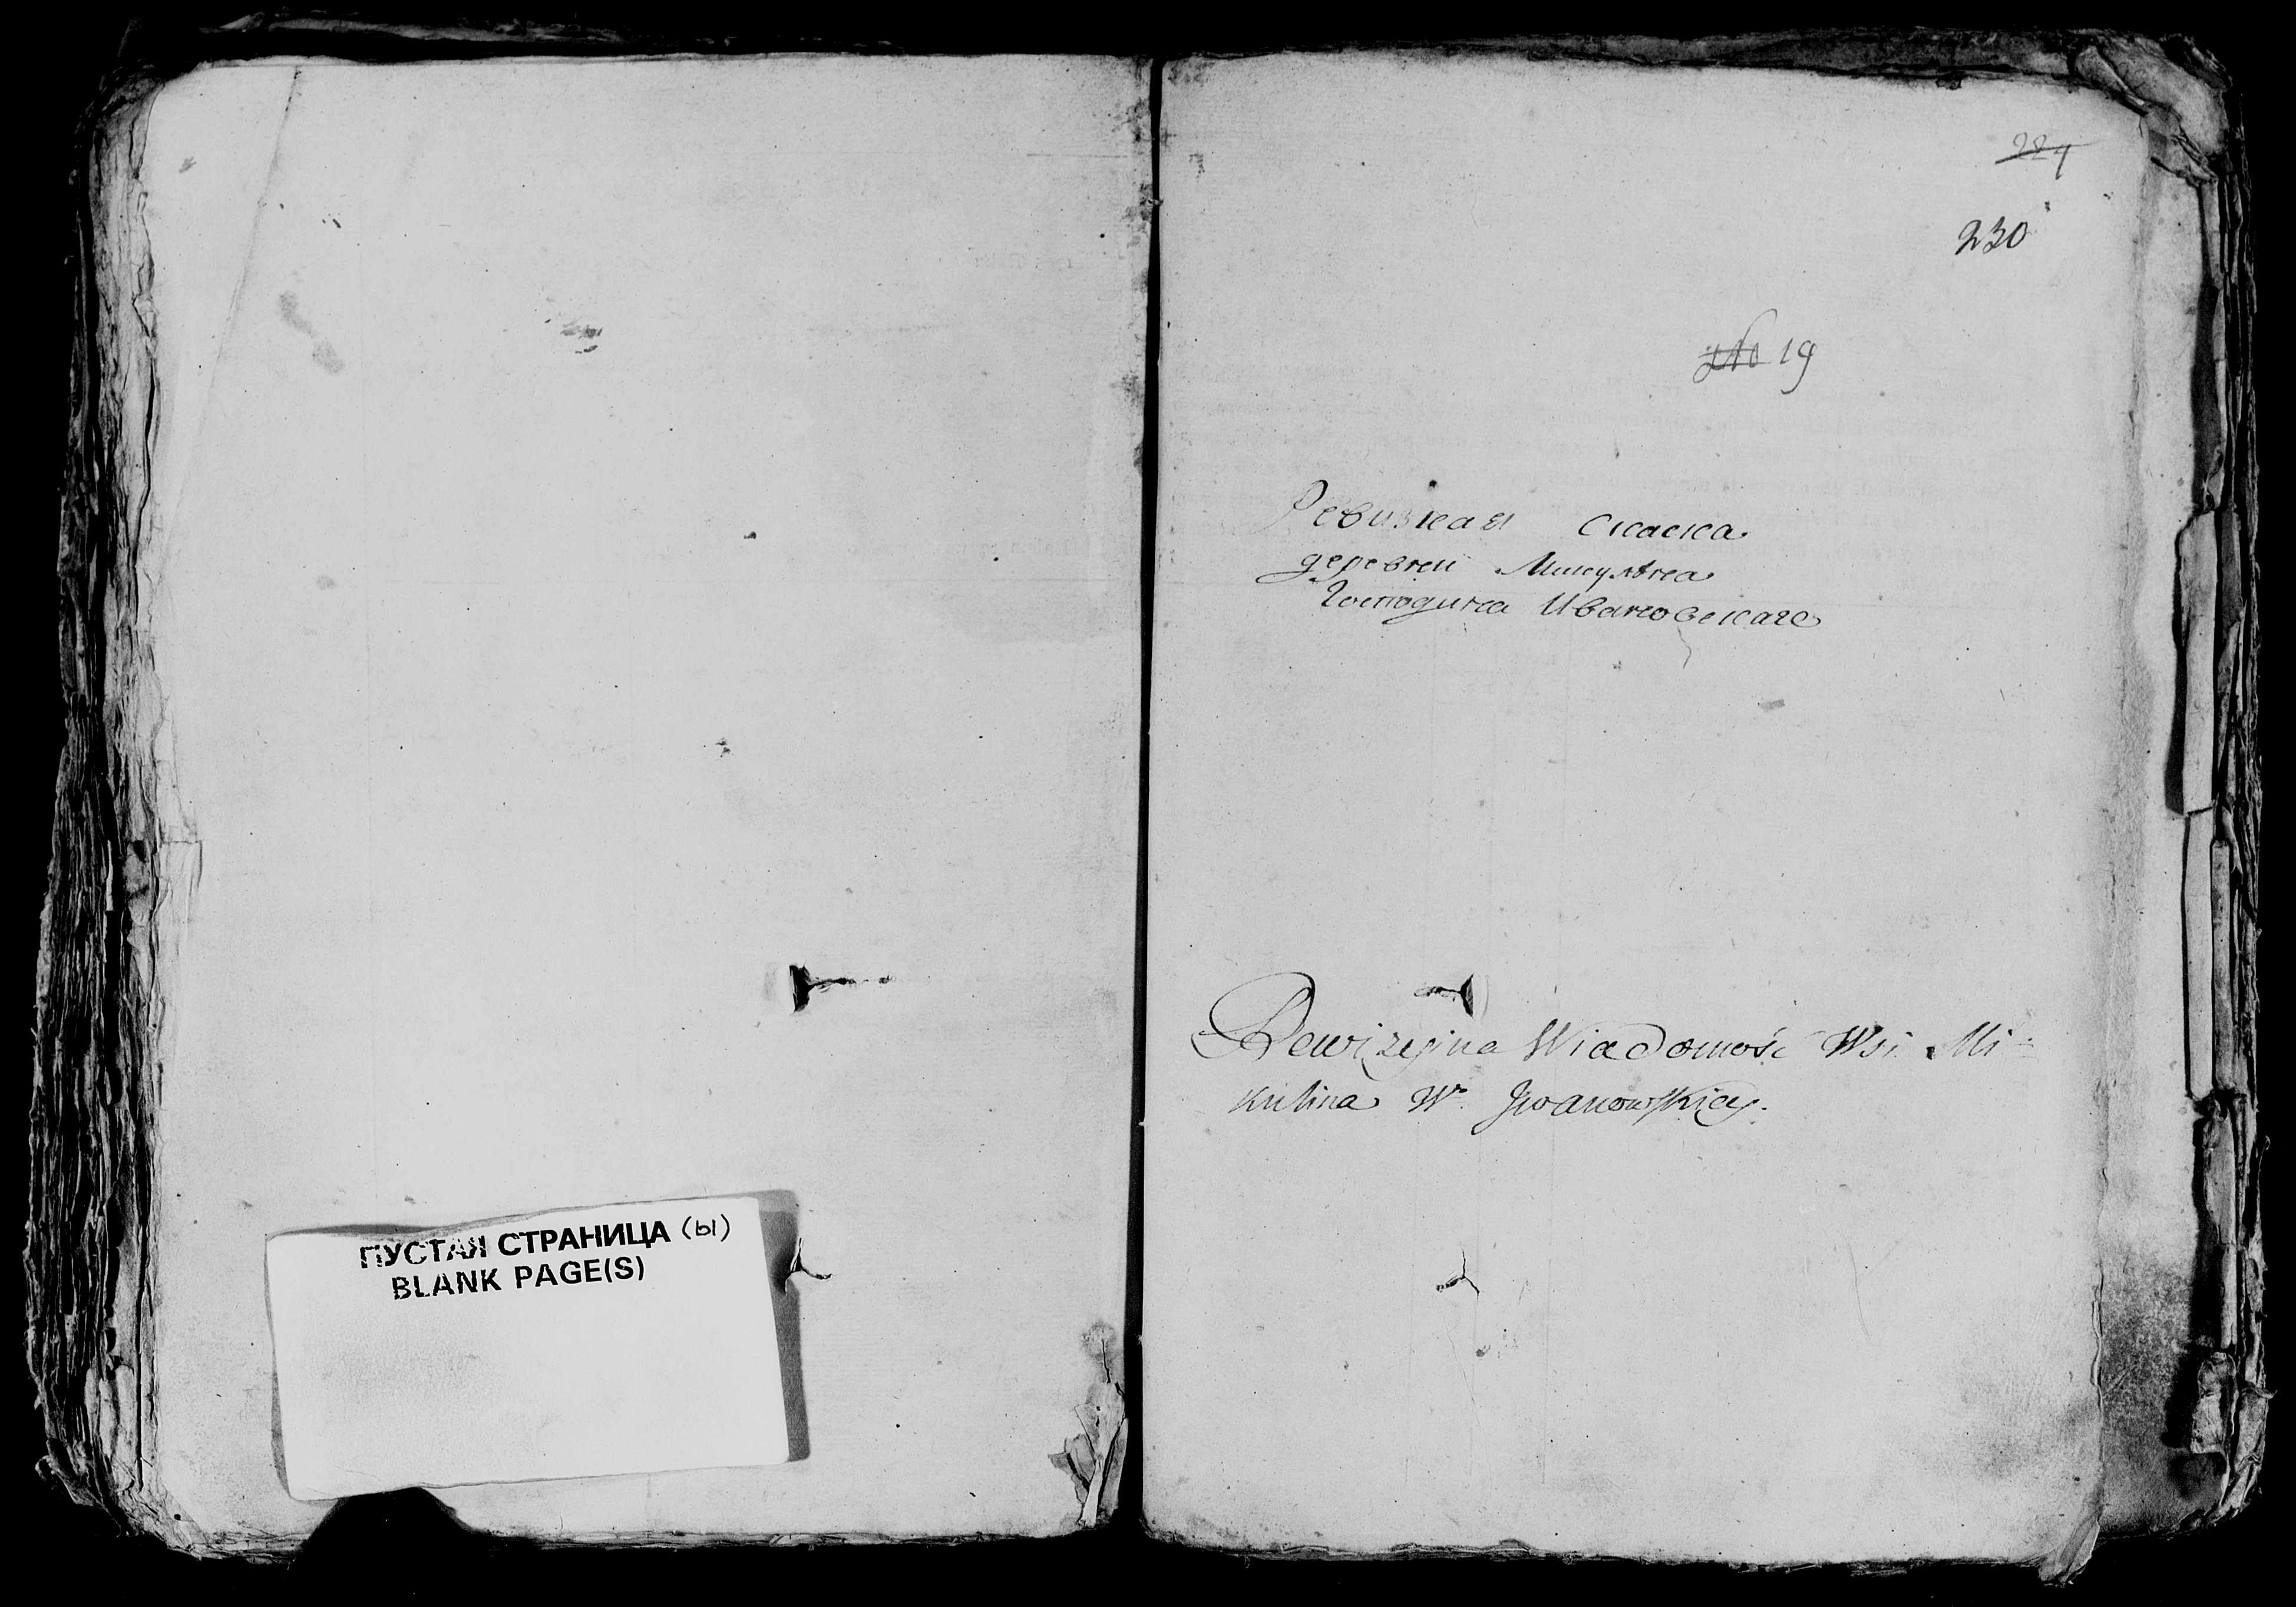 ПУСТАЯ СТРАНИЦА (ы)
BLANK PAGE(S)
224
230
№ 19
Ревизкая Скаска
деревни Микулина
Господина Ивановскаго
Rewizyjna Wiadomość Wsi Mi-
kulina W. Jwanowskiey.